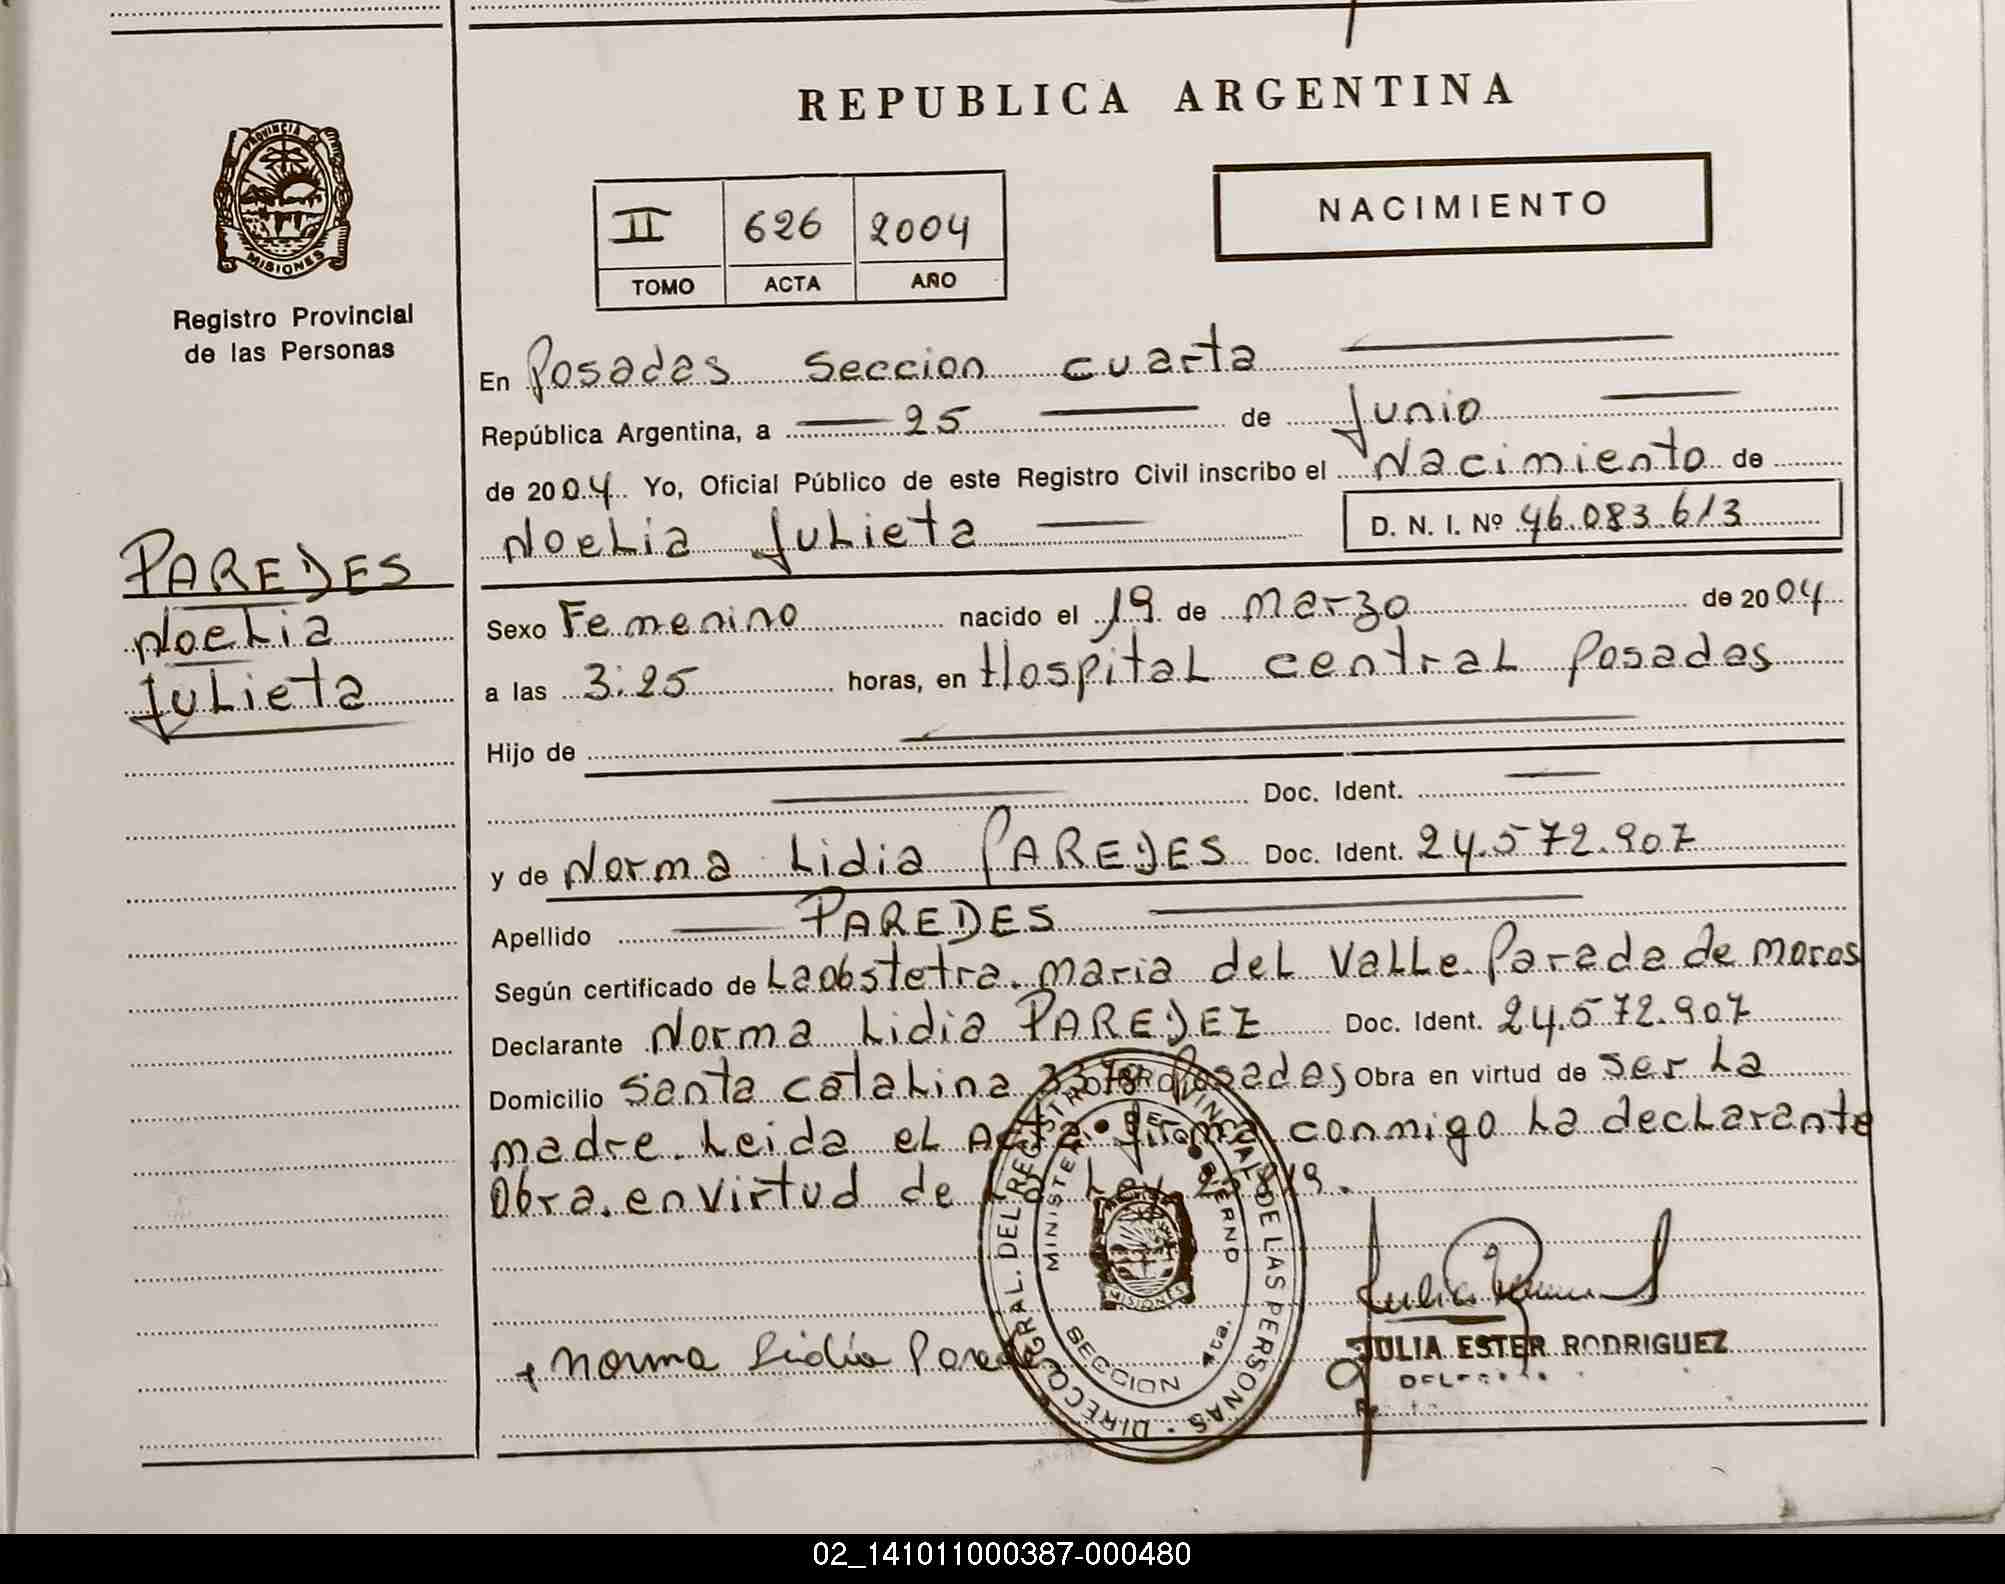 REPUBLICA ARGENTINA
PROVINCIA DE
MISIONES
Registro Provincial
de las Personas
II 626 2004
TOMO ACTA AÑO
NACIMIENTO
En Posadas Seccion cuarta
República Argentina, a 25 de Junio
de 2004. Yo, Oficial Público de este Registro Civil inscribo el Nacimiento de
Noelia Julieta D. N. I. Nº 46.083.613
PAREDES
Noelia
Julieta
Sexo Femenino nacido el 19 de Marzo de 2004
a las 3:25 horas, en Hospital central Posadas
Hijo de
Doc. Ident.
y de Norma Lidia PAREDES Doc. Ident. 24.572.907
Apellido PAREDES
Según certificado de La obstetra. maria del Valle Parada de moros
Declarante Norma Lidia PAREDEZ Doc. Ident. 24.572.907
Domicilio Santa catalina Posadas Obra en virtud de ser La
madre. Leida el Acta firma conmigo La declarante
Obra. en virtud de La Ley
DIRECC. GRAL. DEL REGISTRO PROVINCIAL DE LAS PERSONAS
MINISTERIO DE GOBIERNO
MISIONES
SECCION 4ta.
+ Norma Lidia Paredes
JULIA ESTER RODRIGUEZ
02_141011000387-000480